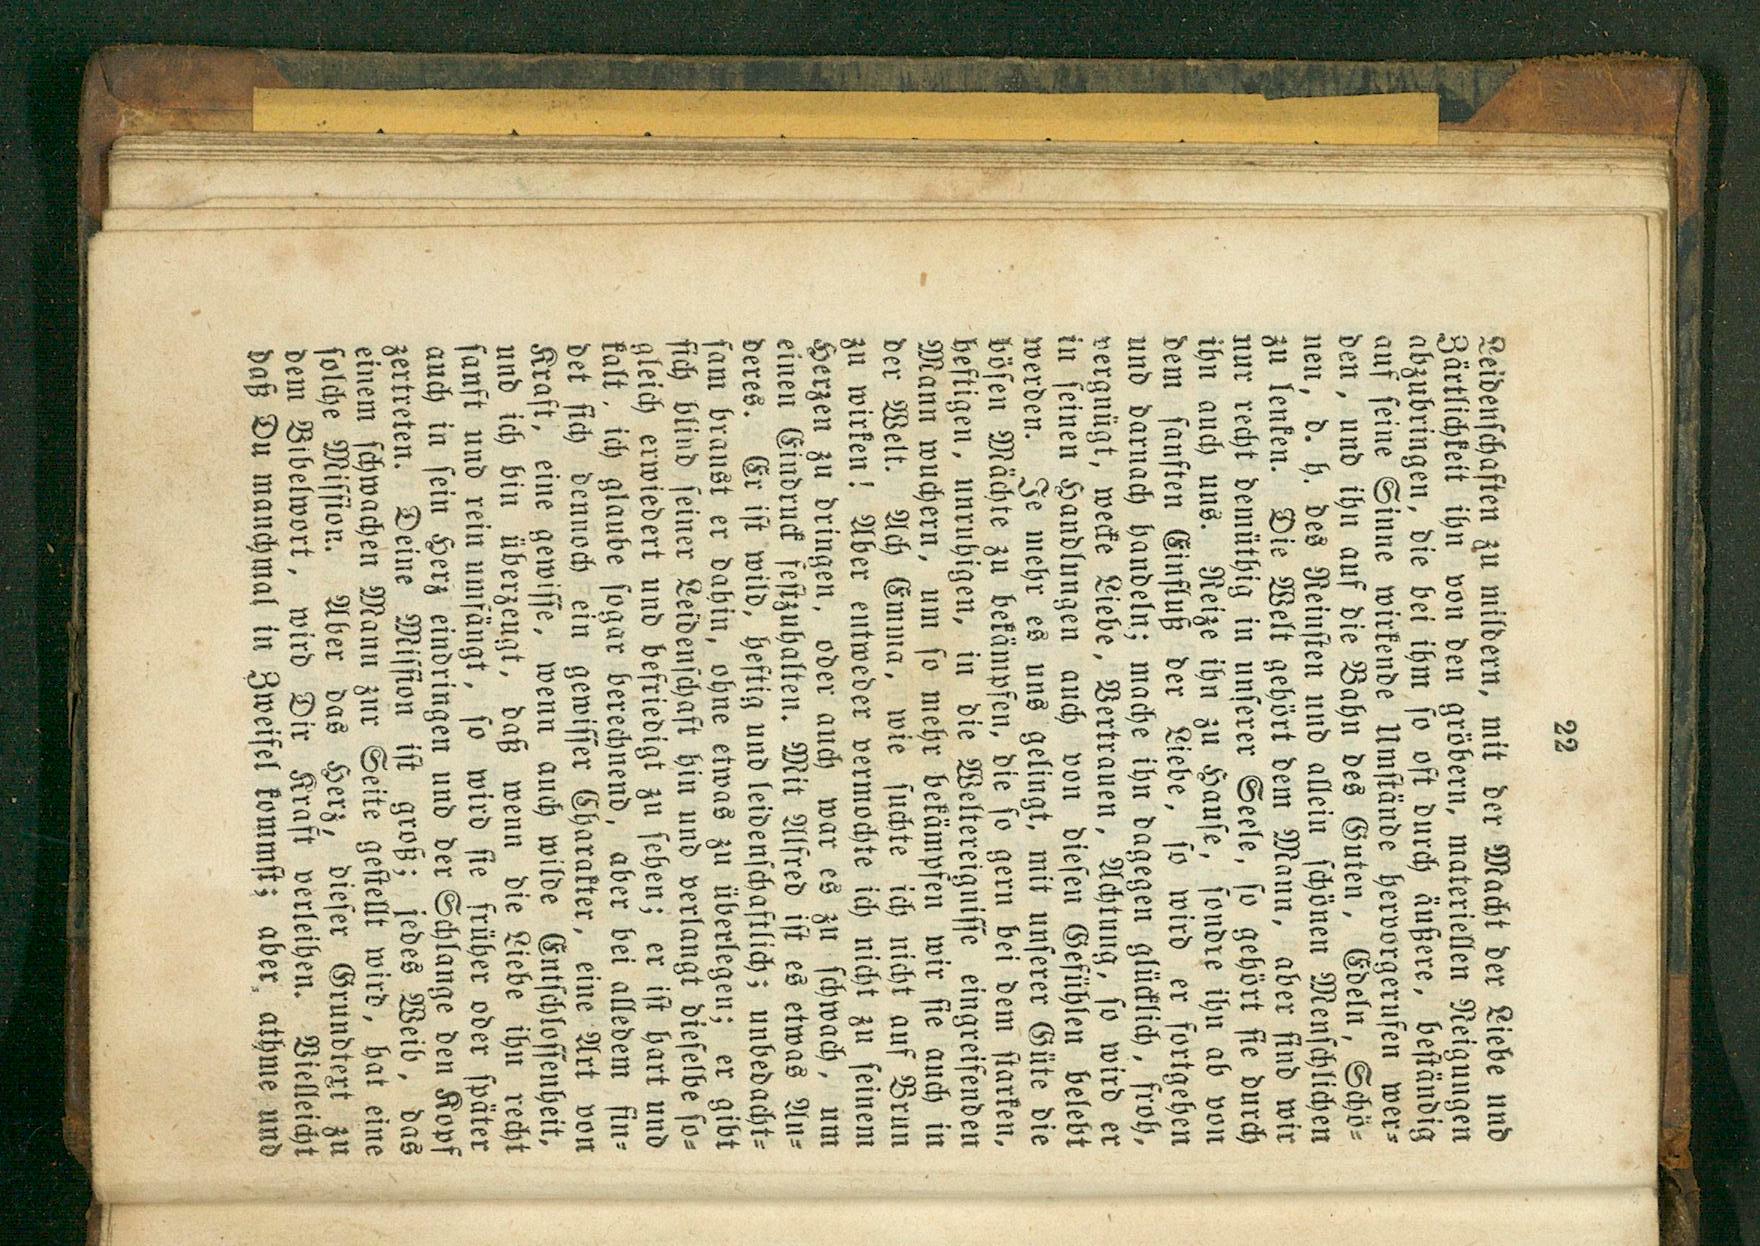 22
Leidenschaften zu mildern, mit der Macht der Liebe und
Zärtlichkeit ihn von den gröbern, materiellen Neigungen
abzubringen, die bei ihm so oft durch äußere, beständig
auf seine Sinne wirkende Umstände hervorgerufen wer-
den, und ihn auf die Bahn des Guten, Edeln, Schö-
nen, d. h. des Reinsten und allein schönen Menschlichen
zu lenken. Die Welt gehört dem Mann, aber sind wir
nur recht demüthig in unserer Seele, so gehört sie durch
ihn auch uns. Reize ihn zu Hause, sondre ihn ab von
dem sanften Einfluß der Liebe, so wird er fortgehen
und darnach handeln; mache ihn dagegen glücklich, froh,
vergnügt, wecke Liebe, Vertrauen, Achtung, so wird er
in seinen Handlungen auch von diesen Gefühlen belebt
werden. Je mehr es uns gelingt, mit unserer Güte die
bösen Mächte zu bekämpfen, die so gern bei dem starken,
heftigen, unruhigen, in die Weltereignisse eingreifenden
Mann wuchern, um so mehr bekämpfen wir sie auch in
der Welt. Ach Emma, wie suchte ich nicht auf Brun
zu wirken! Aber entweder vermochte ich nicht zu seinem
Herzen zu dringen, oder auch war es zu schwach, um
einen Eindruck festzuhalten. Mit Alfred ist es etwas An-
deres. Er ist wild, heftig und leidenschaftlich; unbedacht-
sam braust er dahin, ohne etwas zu überlegen; er gibt
sich blind seiner Leidenschaft hin und verlangt dieselbe so-
gleich erwiedert und befriedigt zu sehen; er ist hart und
kalt, ich glaube sogar berechnend, aber bei alledem fin-
det sich dennoch ein gewisser Charakter, eine Art von
Kraft, eine gewisse, wenn auch wilde Entschlossenheit,
und ich bin überzeugt, daß wenn die Liebe ihn recht
sanft und rein umfängt, so wird sie früher oder später
auch in sein Herz eindringen und der Schlange den Kopf
zertreten. Deine Mission ist groß; jedes Weib, das
einem schwachen Mann zur Seite gestellt wird, hat eine
solche Mission. Aber das Herz, dieser Grundtext zu
dem Bibelwort, wird Dir Kraft verleihen. Vielleicht
daß Du manchmal in Zweifel kommst; aber, athme und